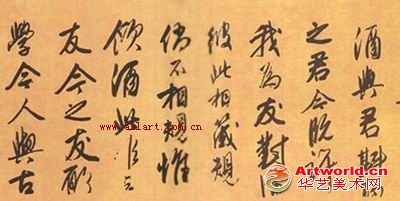 酒與君斟
之君今既
我為友對
彼此相箴規
倘不相規惟
酒此
友今之友願
學今人與古
www.allart.com.cn
Artworld.cn
华艺美术网